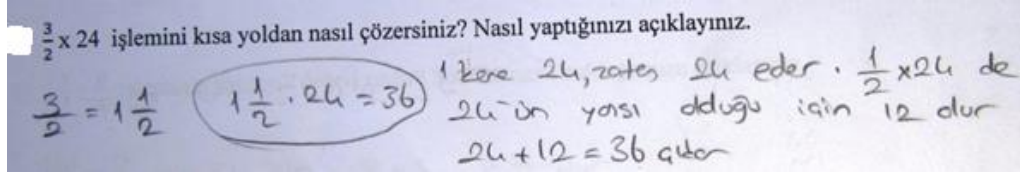 3/2 x 24 işlemini kısa yoldan nasıl çözersiniz? Nasıl yaptığınızı açıklayınız.
3/2 = 1 1/2
1 1/2 . 24 = 36
1 kere 24, zaten 24 eder. 1/2 x 24 de
24'ün yarısı olduğu için 12 olur
24 + 12 = 36 çıkar